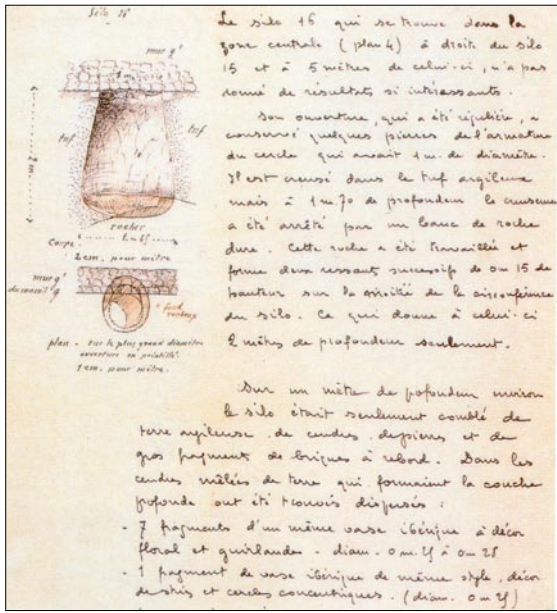 Silo 16
mur g'
tuf
tuf
2 m
rocher
Coupe
2 cm. pour mètre
mur g'
fond
rocheux
plan - sur le plus grand diamètre
ouverture en pointillé.
1 cm. pour mètre.
Le silo 16 qui se trouve dans la
zone centrale (plan 4) à droite du silo
15 et à 5 mètres de celui-ci, n'a pas
donné de résultats si intéressants.
Son ouverture, qui a été régulière, a
conservé quelques pierres de l'armature
du cercle qui avait 1 m. de diamètre.
Il est creusé dans le tuf argileux
mais à 1 m 70 de profondeur le creusement
a été arrêté par un banc de roche
dure. Cette roche a été travaillée et
forme deux ressauts successifs de 0 m 15 de
hauteur sur la moitié de la circonférence
du silo. Ce qui donne à celui-ci
2 mètres de profondeur seulement.
Sur un mètre de pofondeur environ
le silo était seulement comblé de
terre argileuse, de cendres, de pierres et de
gros fragments de briques à rebord. Dans les
cendres mêlées de terre qui formaient la couche
pofonde ont été trouvés dispersés :
- 7 fragments d'un même vase ibérique à décor
floral et guirlandes - diam. 0 m. 25 à 0 m 28
- 1 fragment de vase ibérique de même style, décor
de stries et cercles concentriques. (diam. 0 m 25)